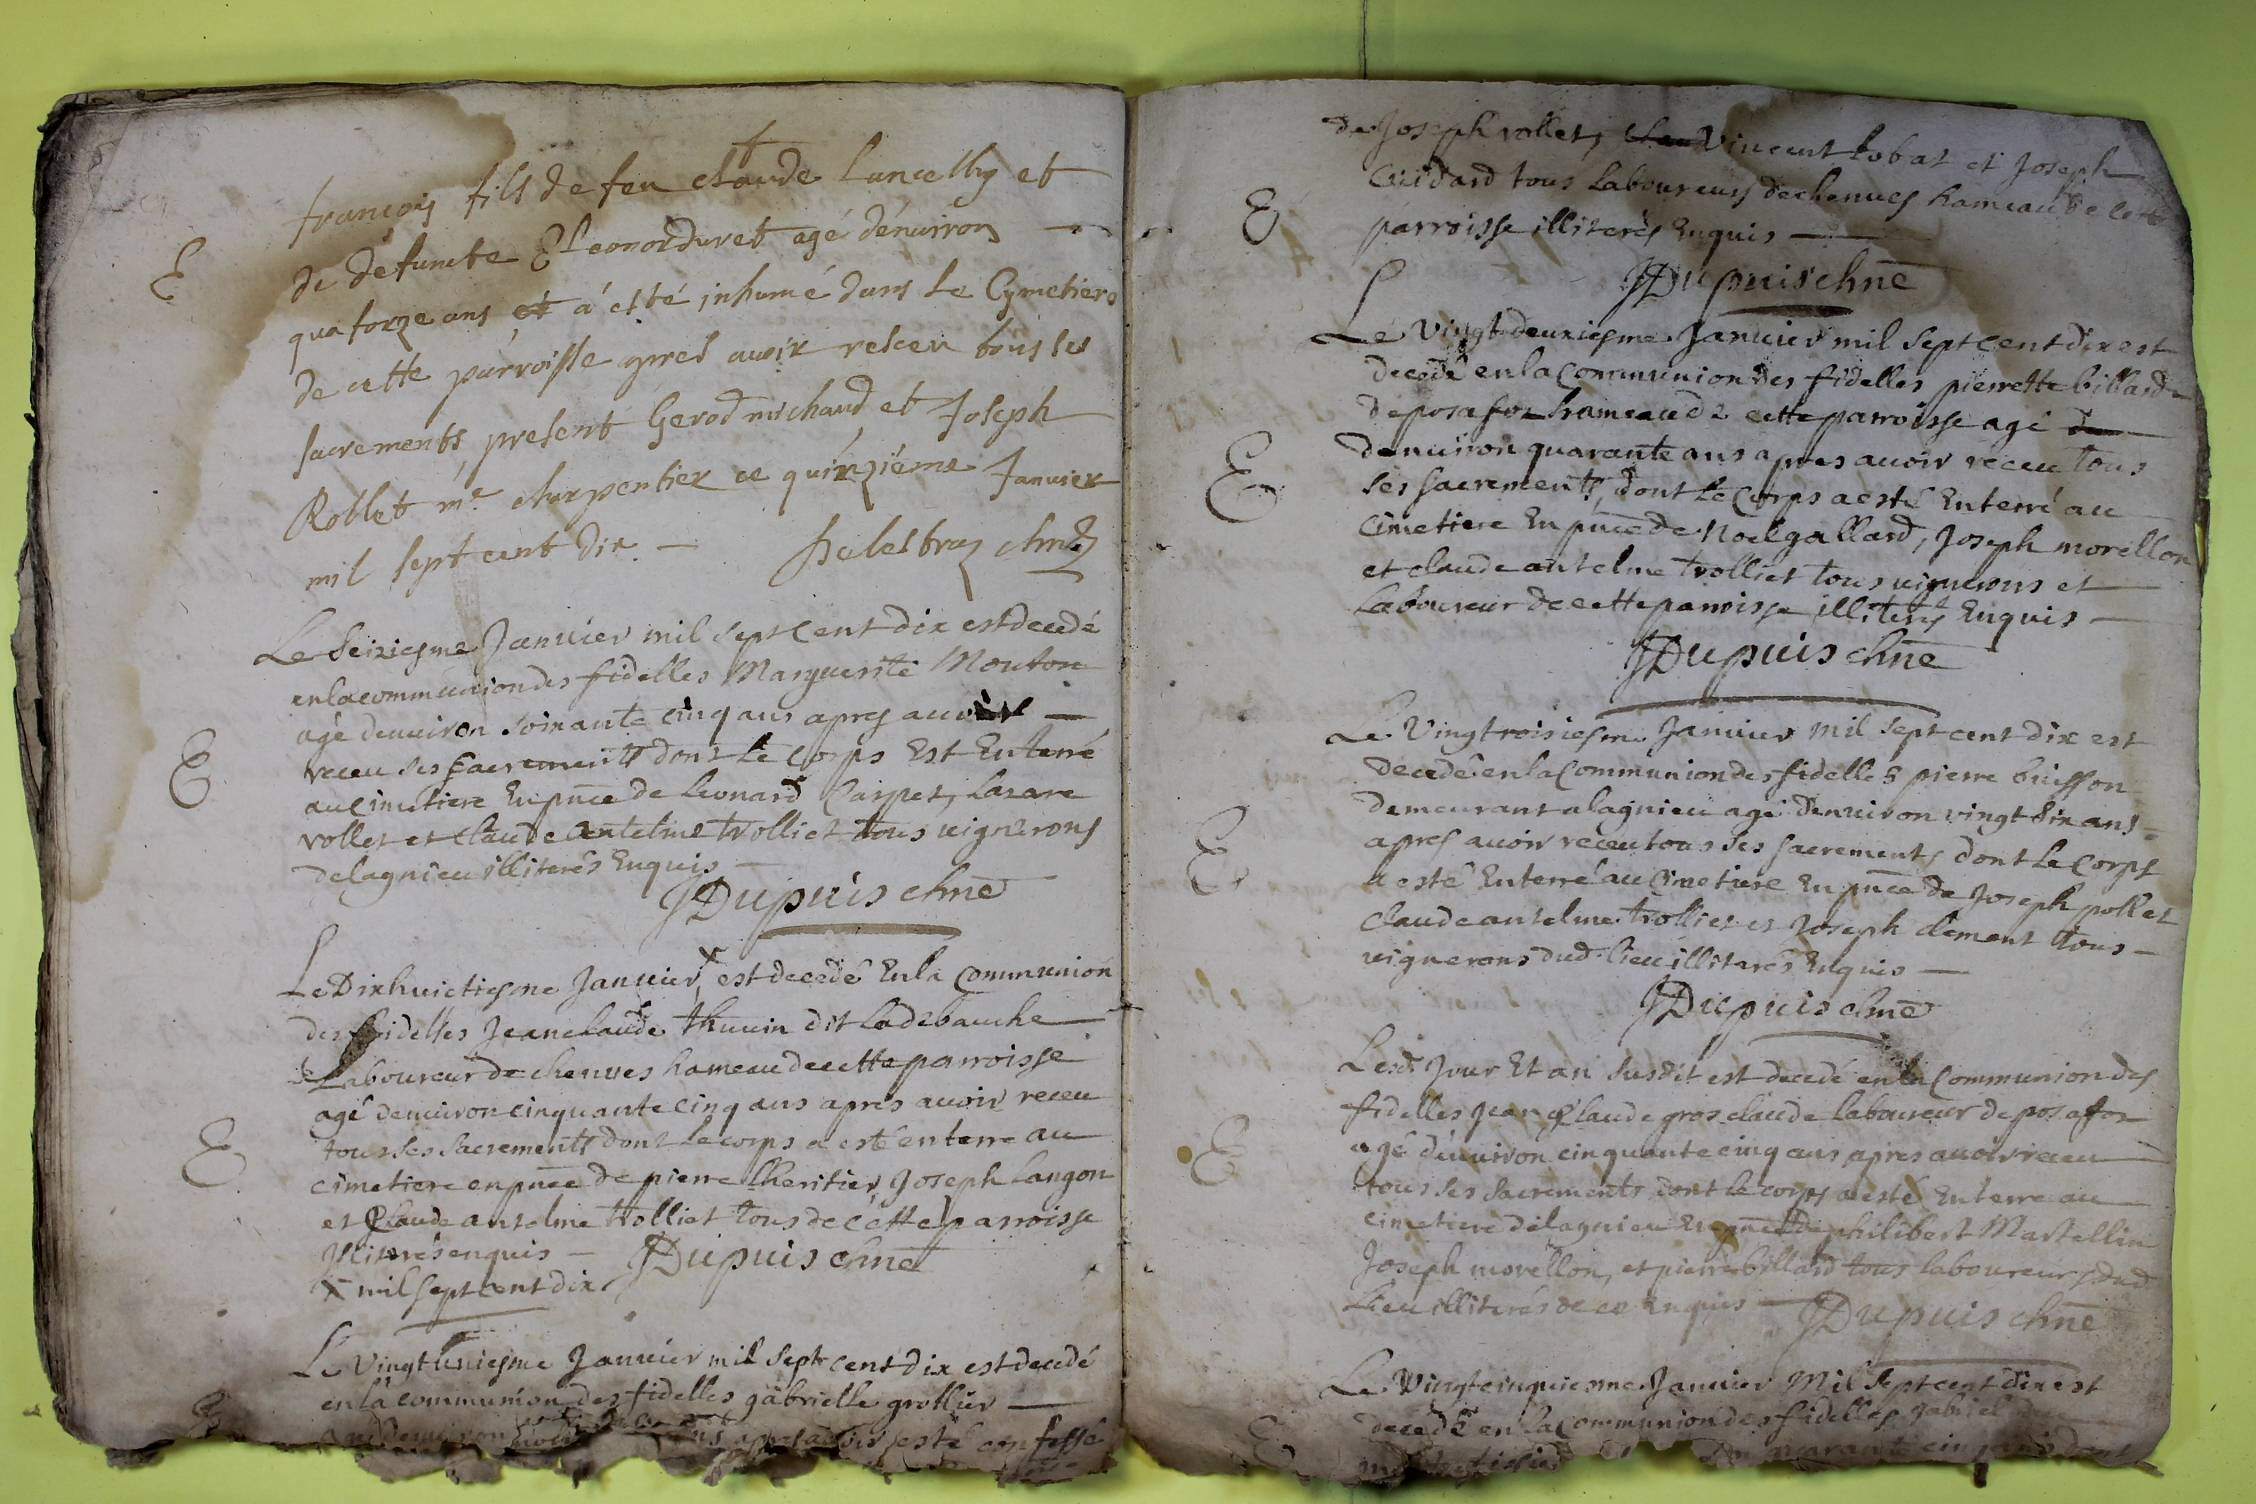 françois fils de feu claude Lancelly et
de defuncte Eleonor duret agé dénuiron
E
quatorze ans et á esté inhumé dans le Cymetiere
de cette parroisse apres auoir releceu tous les
sacrements, present Gerod michaud et Joseph
Rollet me charpentier ce quinziéme Januier
mil sept cent dix —
Le seiziesme Januier mil sept cent dix est decedé
en la communion des fidelles Marguerite Mouton
agé denuiron soixante cinq ans apres auoir —
receu ses sacrements dont le corps Est Enterré
E
au Cimetiere En pnce de Leonard Carpet, Lazare
rollet et claude antelme trolliet tous uignerons
de lagnieu illiterés Enquis —
JDupuis chne
Le Dixhuictiesme Januier x est decedé En la Communion
des fidelles Jean claude thuuin dit Ladebauche
Laboureur de chenues hameau de cette parroisse
agé denuiron cinquante cinq ans apres auoir receu
tous ses sacrements dont le corps a esté enterre au
E
cimetiere en pnce de pierre Lheritier, Joseph Langon
et Claude antelme trolliet tous de cette parroisse
Illiterés enquis — JDupuis chne
x mil sept cent dix
Le Vingt uniesme Januier mil sept cent dix est decedé
en la communion des fidelles gabrielle grollier —
apres auoir esté confessé
de Joseph rollet, Vincent bobat et Joseph
Cuidard tous Laboureurs de chenues hameau de cette
E
parroisse illiterés Enquis —
JDupuis chne
Le Vingt deuxiesme Januier mil sept cent dix est
decedé en la Communion des fidelles pierrette billard
de posafor hameau de cette parroisse agé de
denuiron quarante ans apres auoir receu tous
E
ses sacrements, dont le Corps a esté Enterré au
Cimetiere En pnce de Noel gallard, Joseph morellon
et claude antelme trolliet tous uignerons et
Laboureur de cette parroisse illiterés Enquis —
JDupuis chne
Le Vingtroisiesme Januier mil sept cent dix est
decedé en la Communion des fidelles pierre buisson
demeurant a lagnieu agé denuiron vingt six ans
E
apres auoir receu tous ses sacrements dont le Corps
a esté Enterré au Cimetiere En pnce de Joseph pollet
Claude antelme trolliet et Joseph clement tous —
uignerons dud. lieu illiterés Enquis —
JDupuis chne
Lesd. Jour Et an susdit est decedé en la Communion des
fidelles Jean Claude gros claude laboureur de posafor
agé dénuiron cinquante cinq ans apres auoir receu
E
tous ses sacrements dont le corps a esté Enterre au
cimetiere de lagnieu En pnce de philibert Martellin
Joseph morellon, et pierre billard tous laboureurs dud.
Lieu illiterés de ce Enquis — JDupuis chne
Le Vingt cinquiesme Januier Mil sept cent dix est
decedé en la Communion des fidelles
quarante cinq ans dont